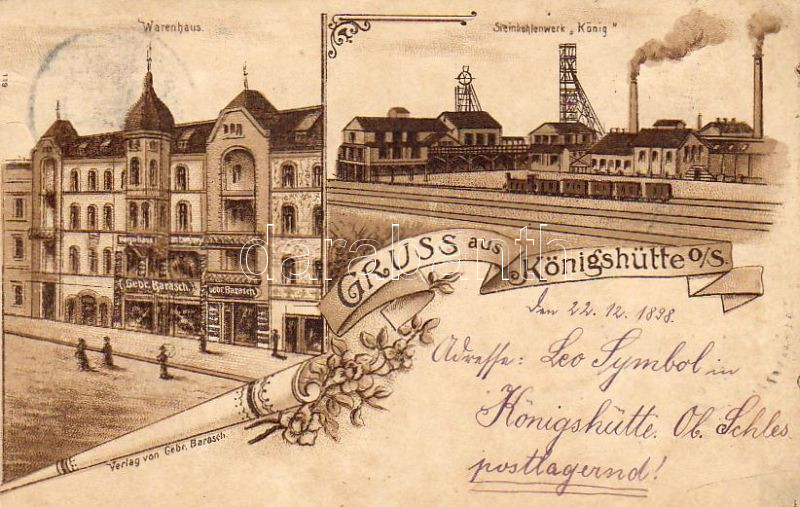 Warenhaus.
Steinkohlenwerk „König"
Gebr. Barasch.
Gebr. Barasch
GRUSS aus Königshütte O/S.
den 22. 12. 1898.
Adresse: Leo Symbol in
Königshütte. Ob. Schles
postlagernd!
Verlag von Gebr. Barasch.
119
darabanth